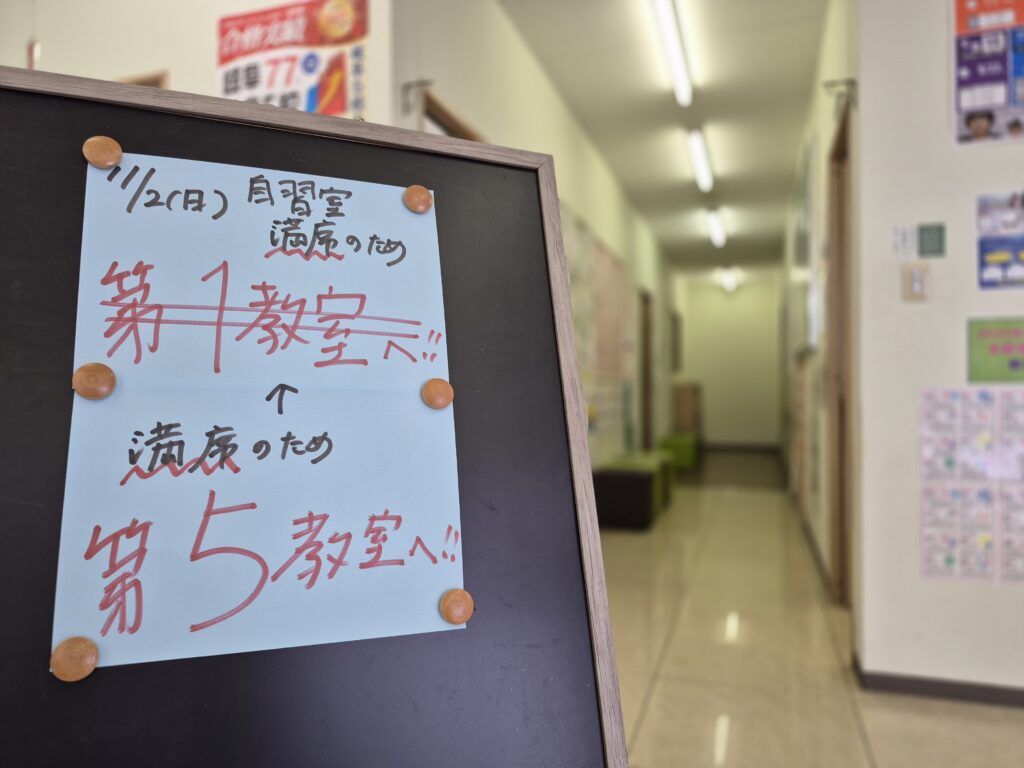 11/2(日) 自習室
満席のため
第1教室へ!!
↑
満席のため
第5教室へ!!
合格実績
77